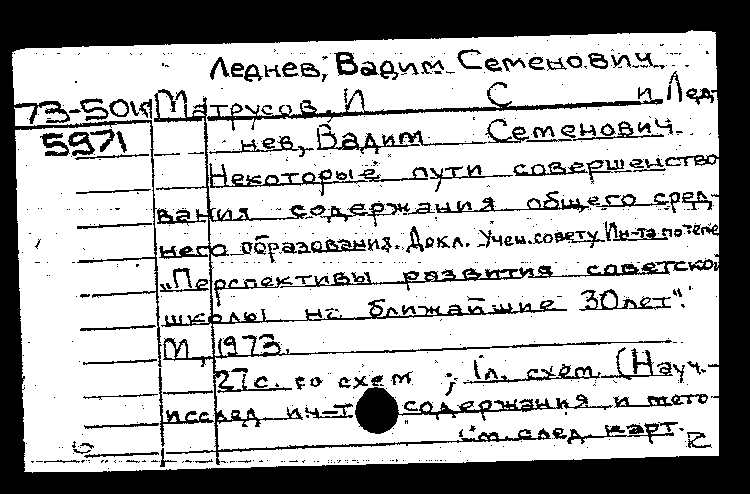 Леднев, Вадим Семенович
73-50 Матрусов, И С и Лед-
5971 нев, Вадим Семенович
Некоторые пути совершенство
вания содержания общего сред-
него образования. Докл. Учен. совету Ин-та по теме
„Перспективы развития советской
школы на ближайшие 30 лет".
М, 1973.
27 с. со схем ; 1 л. схем. (Науч.-
исслед ин-т содержания и мето-
см. след. карт.